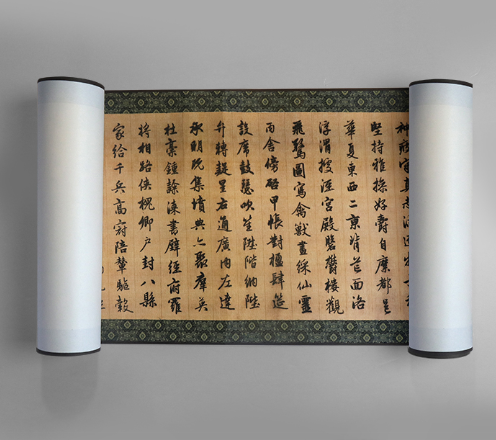 神疲守真志滿逐物
堅持雅操好爵自縻都邑
華夏東西二京背芒面洛
浮渭據涇宮殿盤鬱樓觀
飛驚圖寫禽獸畫綵仙靈
丙舍傍啓甲帳對楹肆筵
設席鼓瑟吹笙陞階納陛
弁轉疑星右通廣內左達
承明既集墳典亦聚羣英
杜稾鍾隸漆書壁經府羅
將相路俠槐卿戶封八縣
家給千兵高冠陪輦驅轂